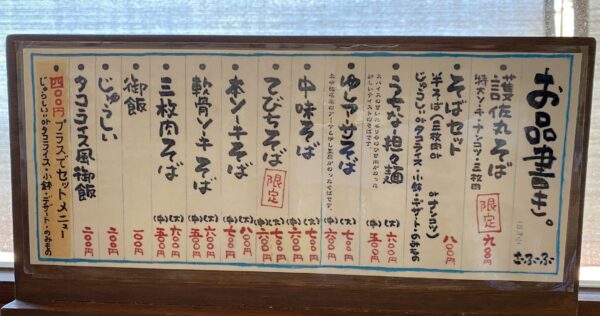 お品書き。
護佐丸そば 限定 九八〇円
特大ソーキ・ナンコツ・三枚肉
そばセット 八〇〇円
半そば(三枚肉 or ナンコツ)
じゅうしぃ or タコライス・小鉢・デザート・のみもの
うちなー担々麺 (大)六〇〇円 (中)五〇〇円
ゆしどーふそば (大)七〇〇円 (中)六〇〇円
中味そば (大)七〇〇円 (中)六〇〇円
てびちそば 限定 (大)七〇〇円 (中)六〇〇円
本ソーキそば (大)八〇〇円 (中)七〇〇円
軟骨ソーキそば (大)六〇〇円 (中)五〇〇円
三枚肉そば (大)六〇〇円 (中)五〇〇円
御飯 一〇〇円
じゅうしぃ 二〇〇円
タコライス風御飯 二〇〇円
四〇〇円プラスでセットメニュー
じゅうしぃ or タコライス・小鉢・デザート・のみもの